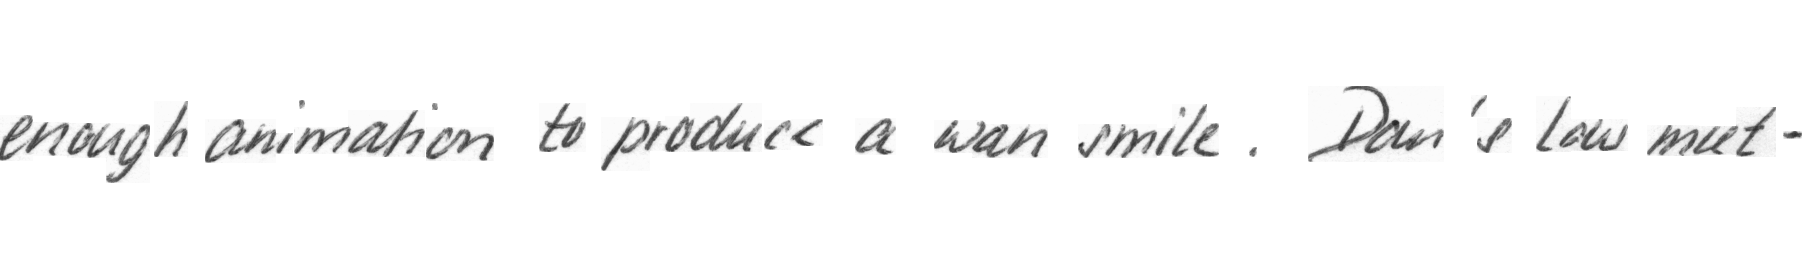 enough animation to produce a wan smile. Dan's law meet-